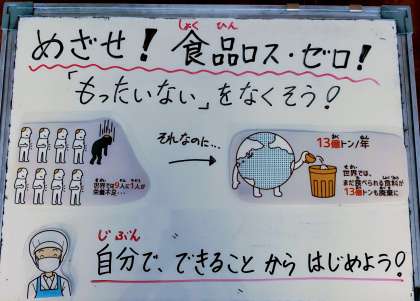 めざせ！食品ロス・ゼロ！
しょく ひん
「もったいない」をなくそう！
それなのに…
世界では9人に1人が
栄養不足…
13億トン/年
世界では、
まだ食べられる食料が
13億トンも廃棄に
じぶん
自分で、できることからはじめよう！